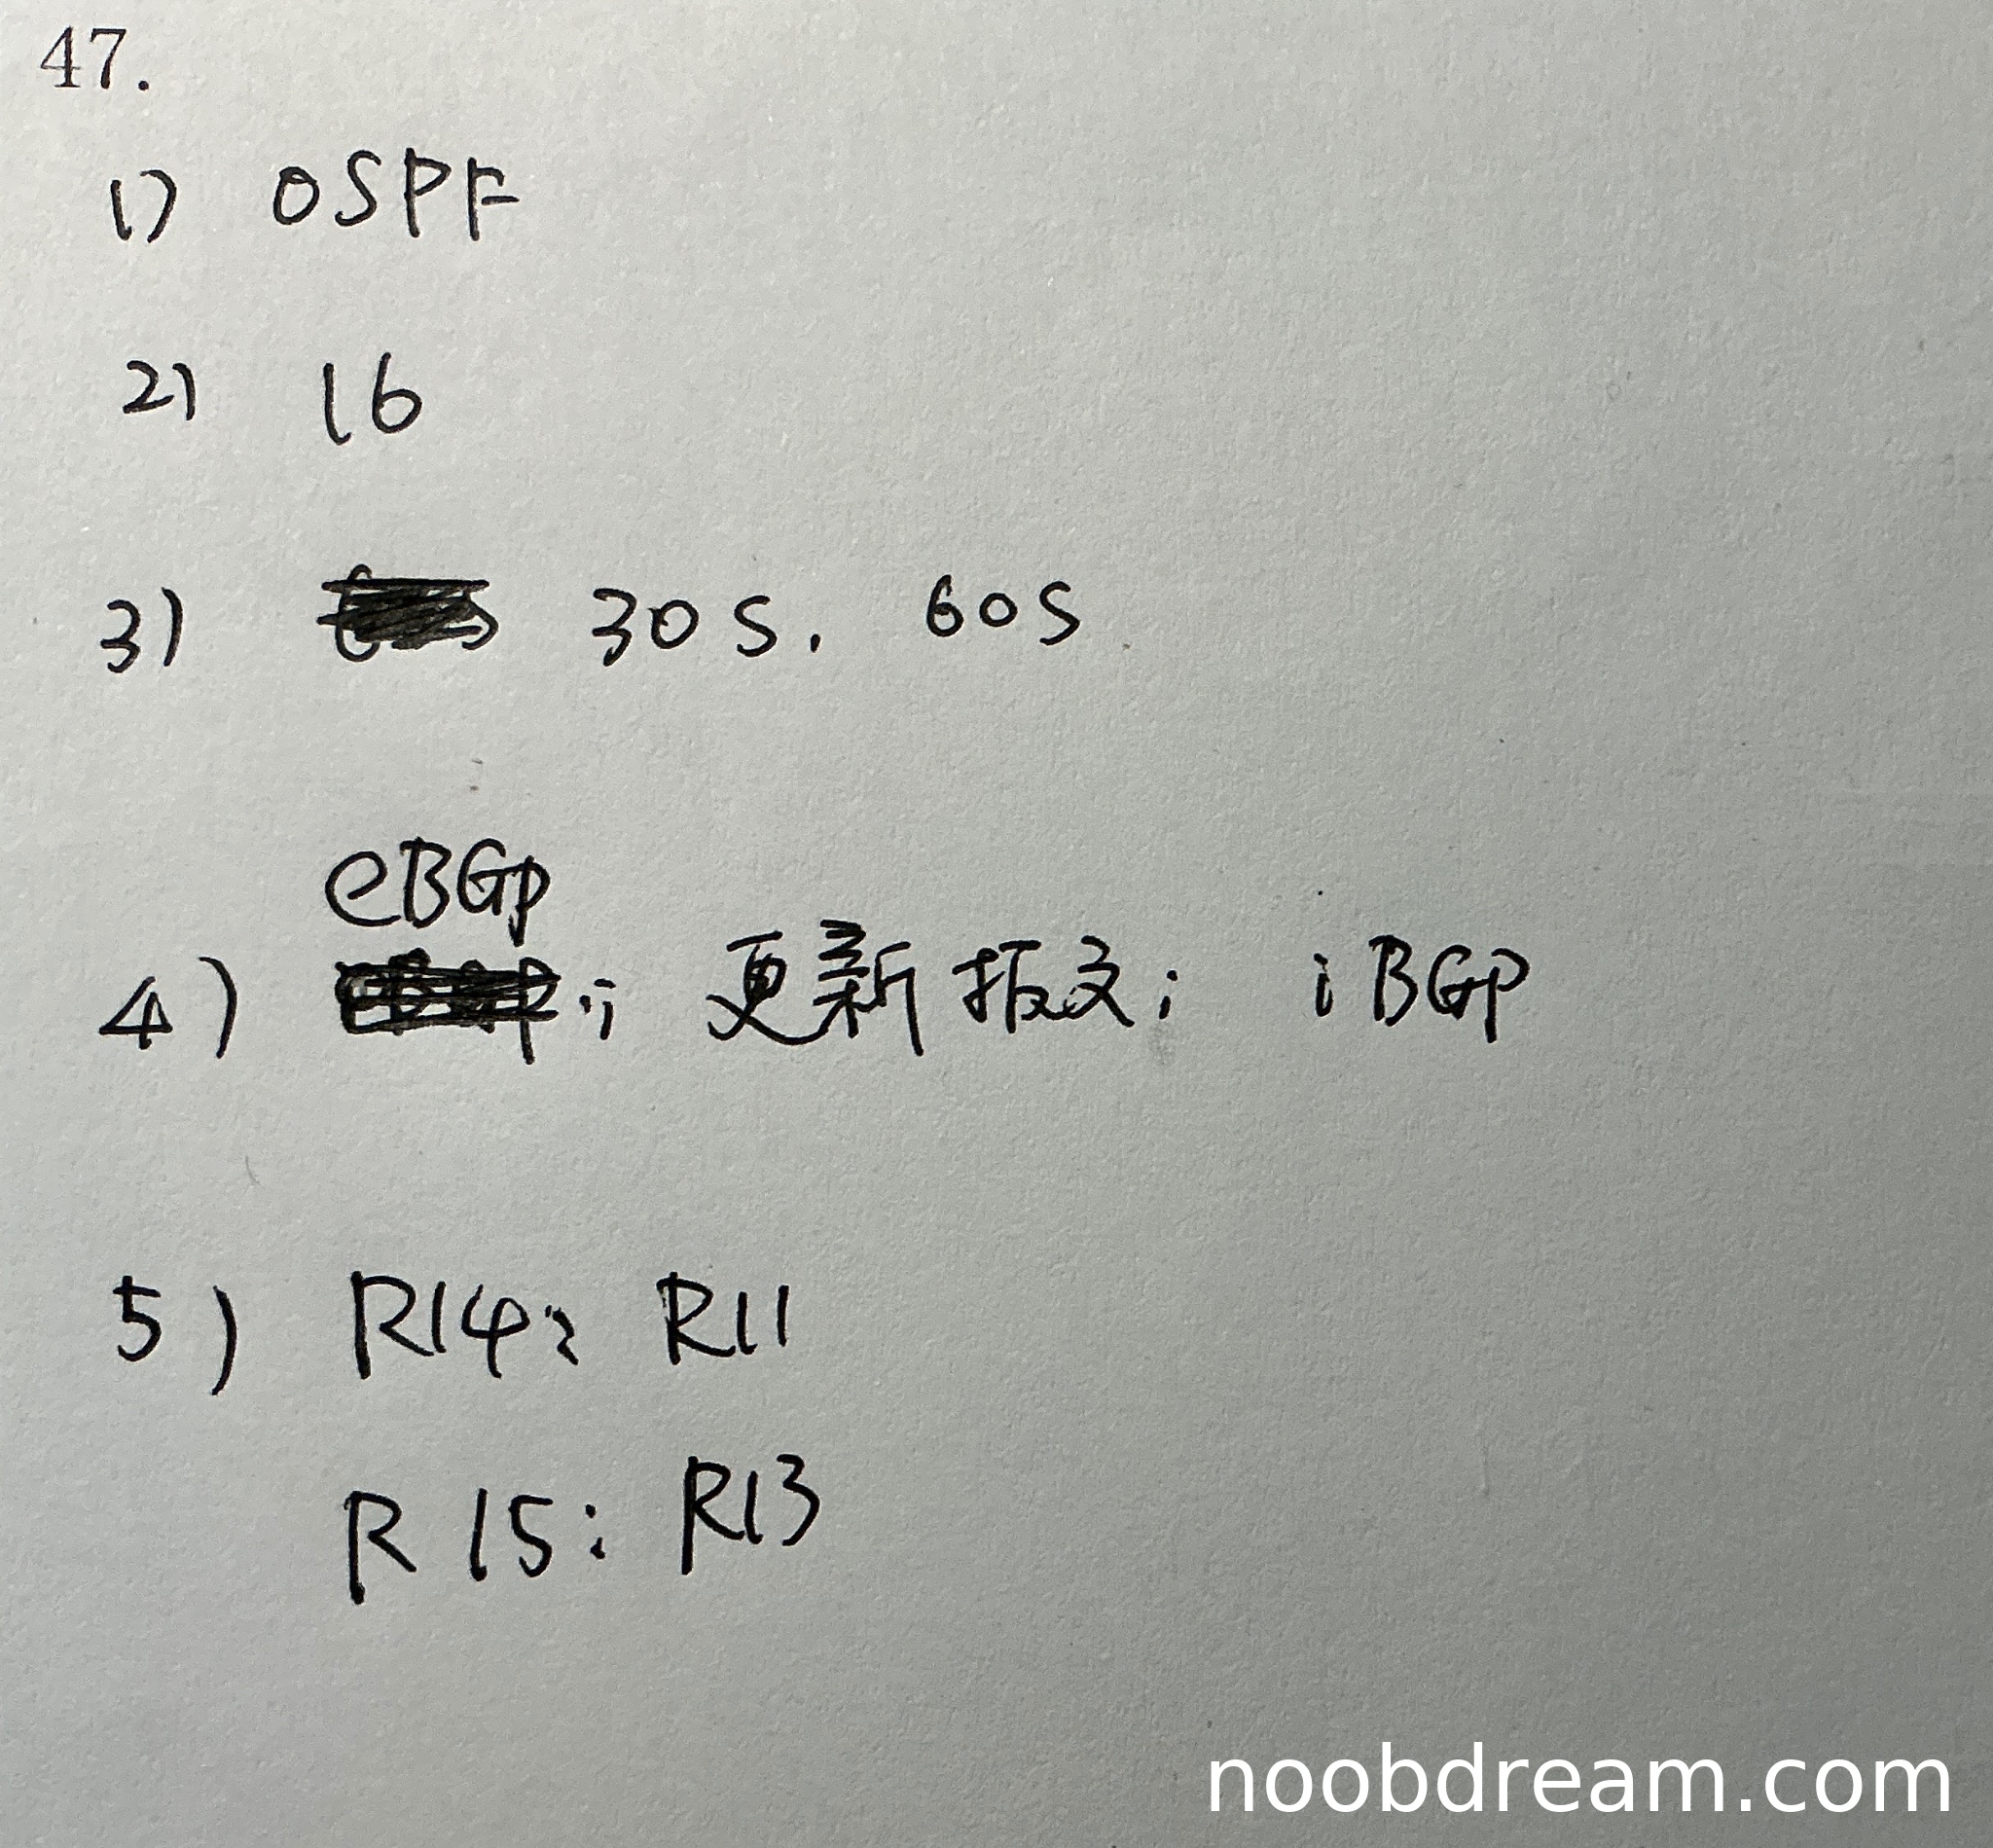 47.
1) OSPF
2) 16
3) 30s. 60s
eBGP
4) ; 更新报文; iBGP
5) R14: R11
R15: R13
noobdream.com